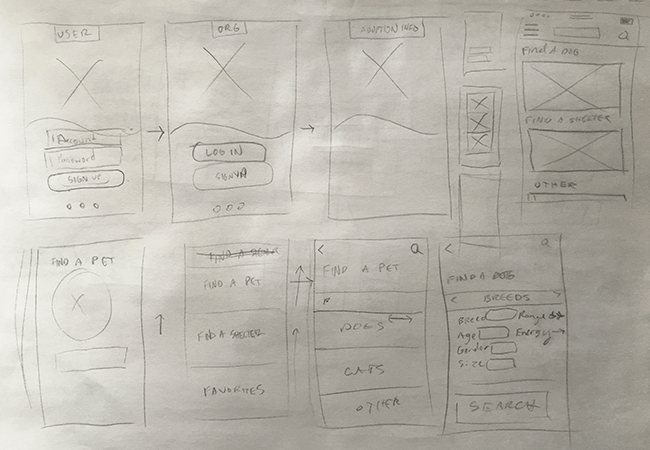 USER
Account
Password
SIGN UP
ORG
LOG IN
SIGN UP
ADOPTION INFO
FIND A DOG
FIND A SHELTER
OTHER
FIND A PET
FIND A PET
FIND A SHELTER
FAVORITES
FIND A PET
DOGS
CATS
OTHER
FIND A DOG
< BREEDS >
Breed Range
Age Energy
Gender
Size
SEARCH